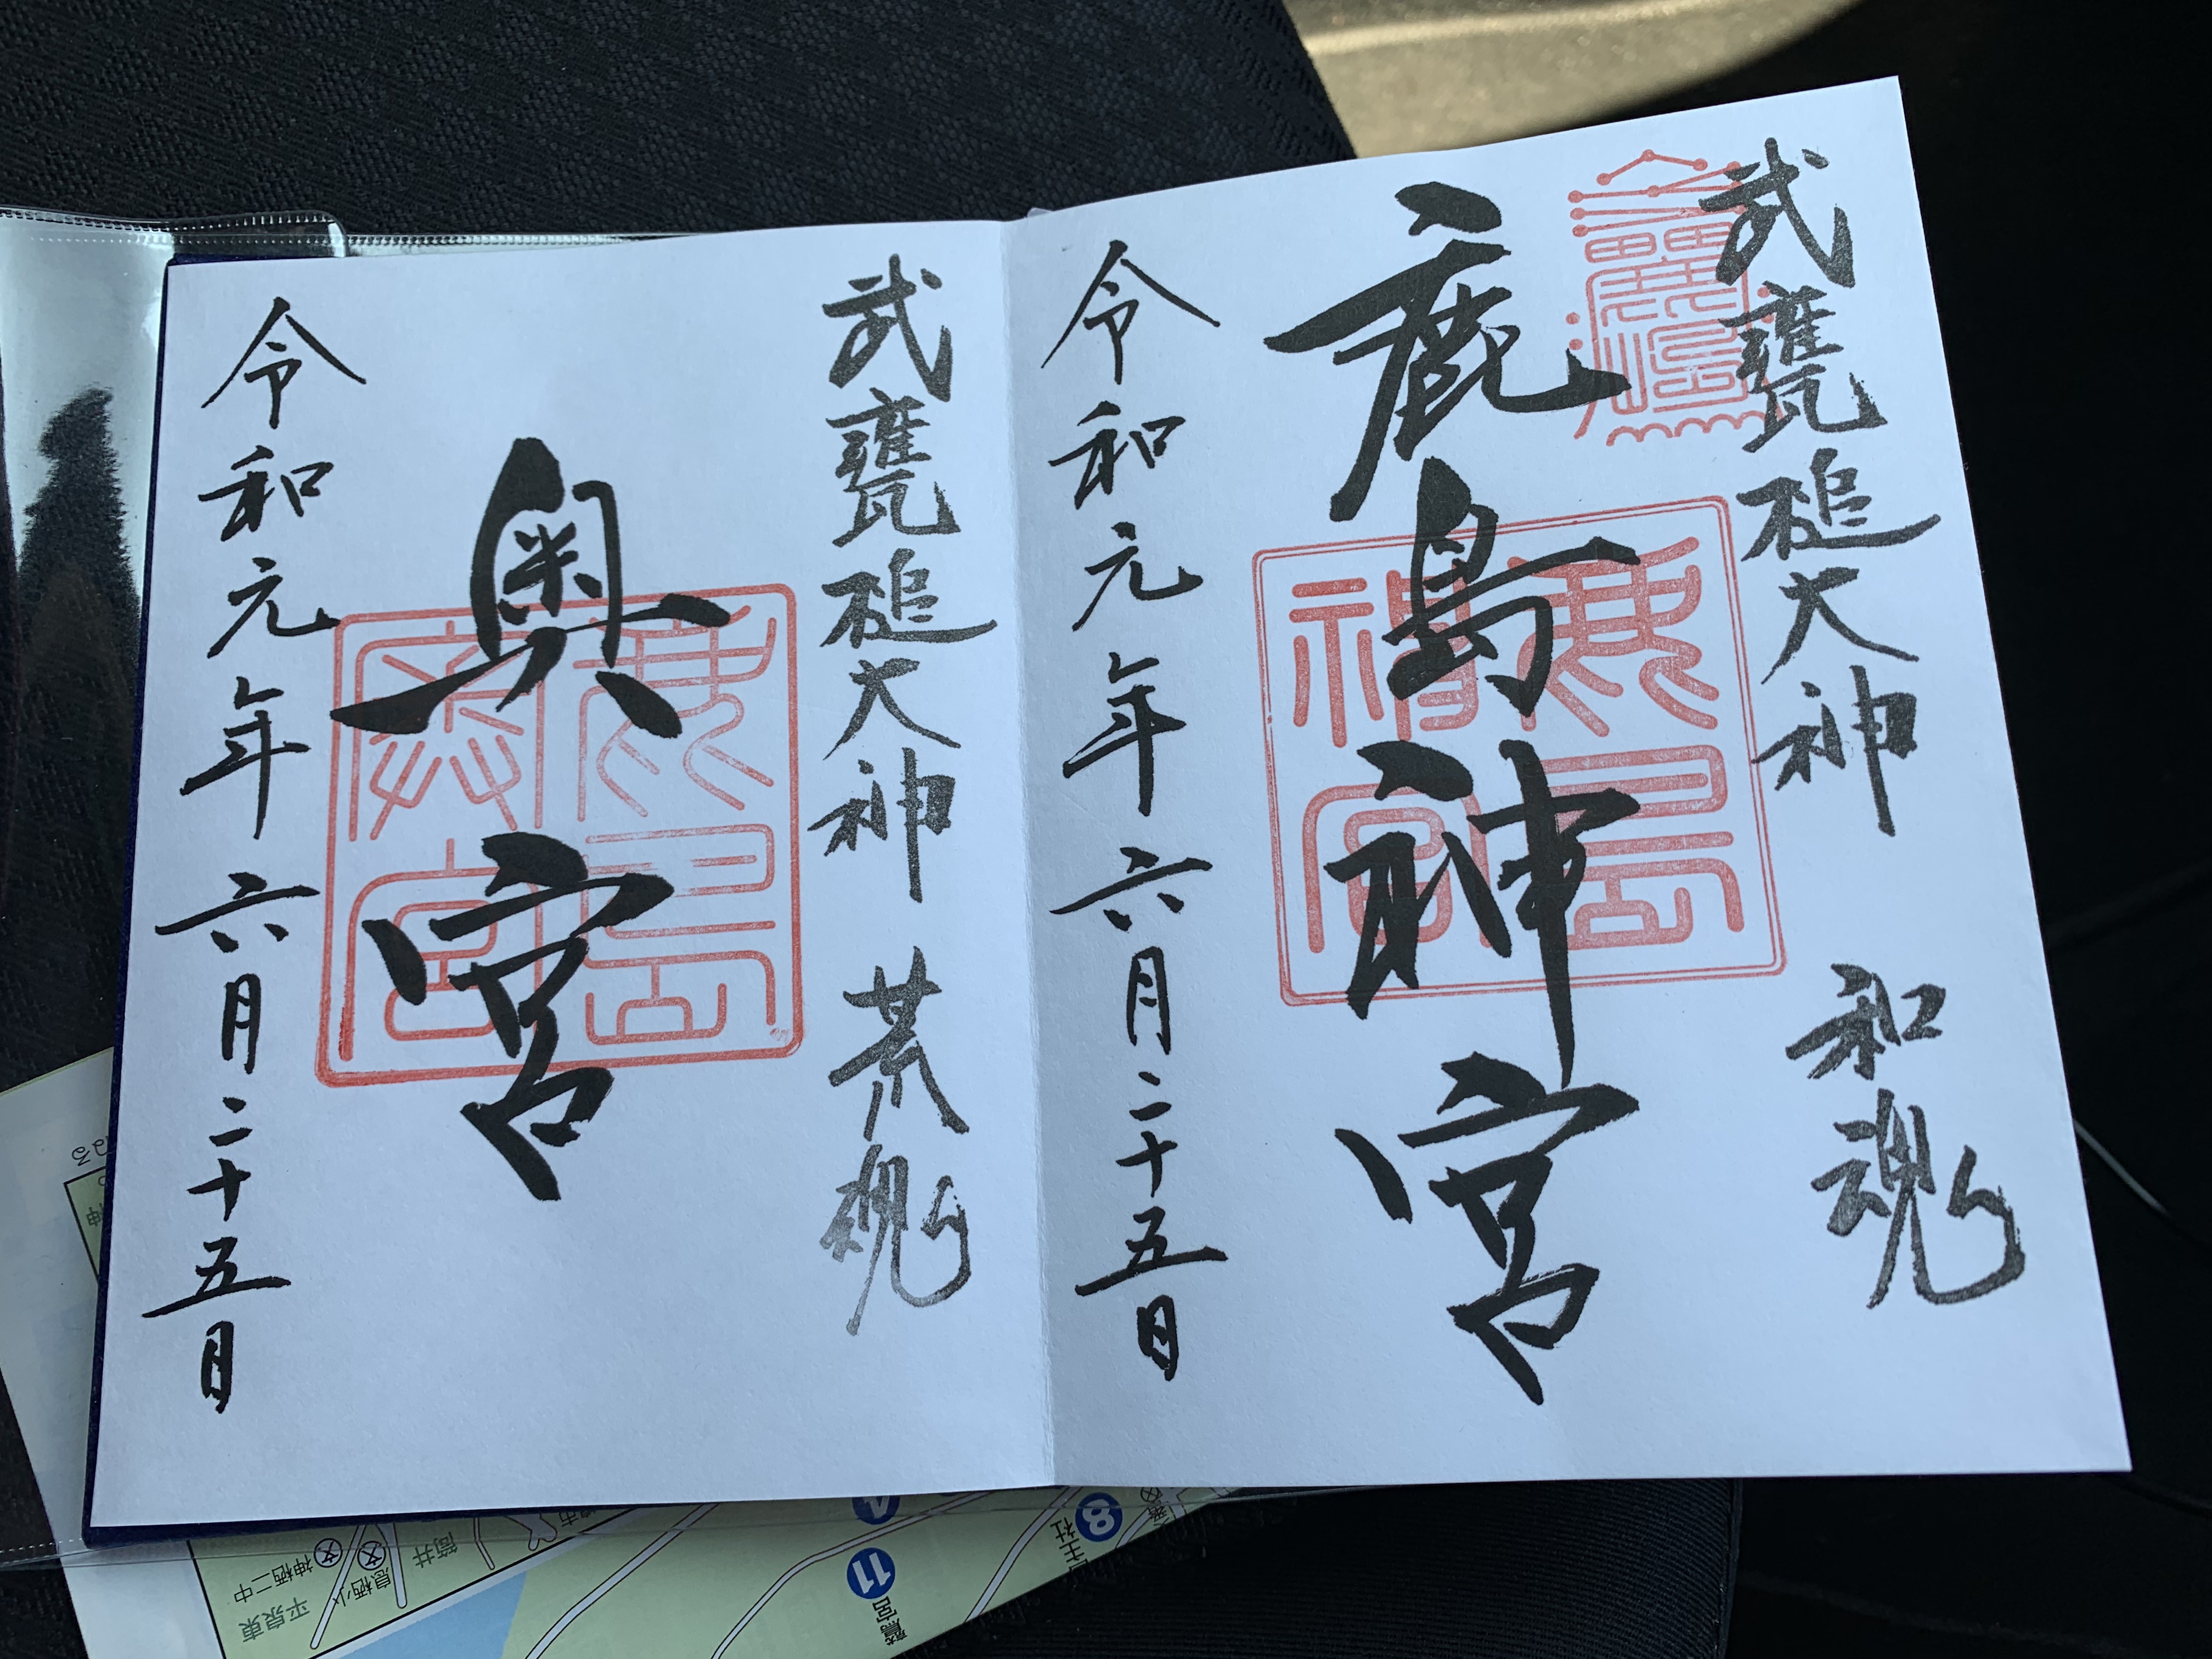 武甕槌大神 和魂
鹿島神宮
鹿島神宮
令和元年六月二十五日
武甕槌大神 荒魂
奥宮
令和元年六月二十五日
神栖二中
息栖小
筒井
平泉東
4
8
11